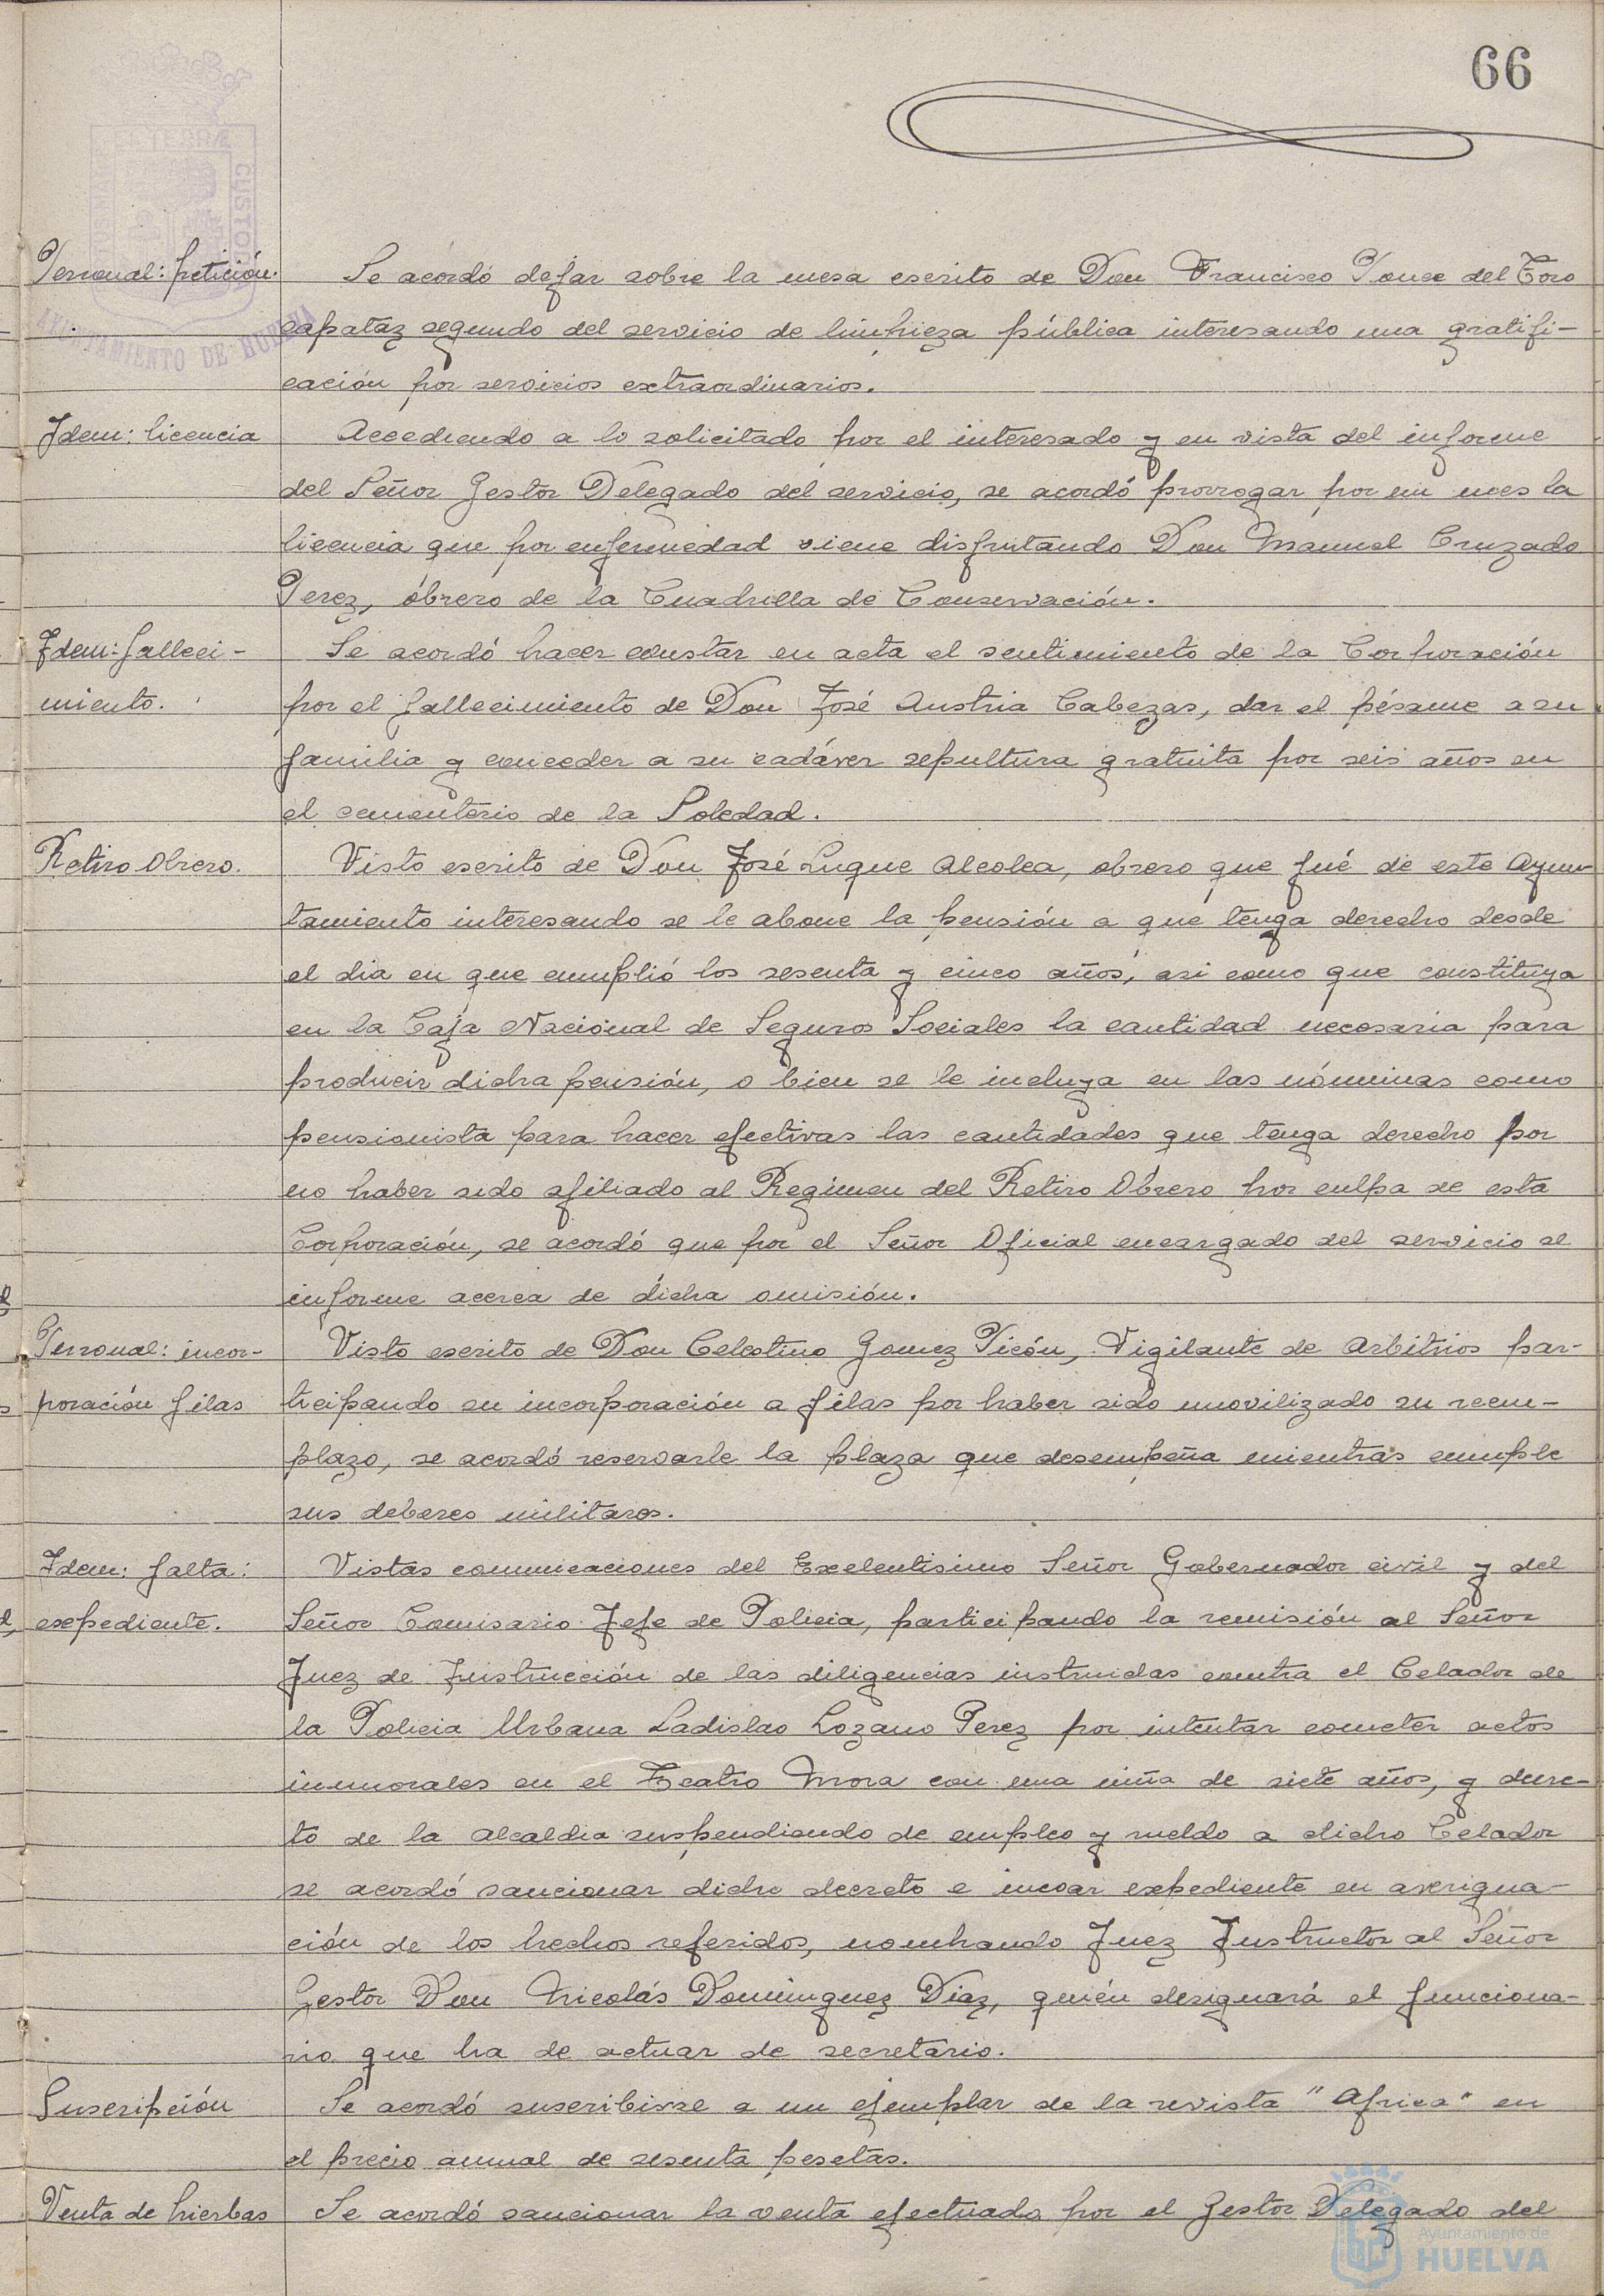 66
PORTUS MARIS ET TERRÆ CUSTODIA
AYUNTAMIENTO DE HUELVA
Personal: petición. Se acordó dejar sobre la mesa escrito de Don Francisco Ponce del Toro
capataz segundo del servicio de limpieza pública interesando una gratifi-
cación por servicios extraordinarios.
Idem: licencia Accediendo a lo solicitado por el interesado y en vista del informe
del Señor Gestor Delegado del servicio, se acordó prorrogar por un mes la
licencia que por enfermedad viene disfrutando Don Manuel Cruzado
Perez, obrero de la Cuadrilla de Conservación.
Idem: falleci- Se acordó hacer constar en acta el sentimiento de la Corporación
miento. por el fallecimiento de Don José Austria Cabezas, dar el pésame a su
familia y conceder a su cadáver sepultura gratuita por seis años en
el cementerio de la Soledad.
Retiro Obrero. Visto escrito de Don José Luque Alcolea, obrero que fué de este Ayun-
tamiento interesando se le abone la pensión a que tenga derecho desde
el dia en que cumplió los sesenta y cinco años, asi como que constituya
en la Caja Nacional de Seguros Sociales la cantidad necesaria para
producir dicha pensión, o bien se le incluya en las nóminas como
pensionista para hacer efectivas las cantidades que tenga derecho por
no haber sido afiliado al Regimen del Retiro Obrero por culpa de esta
Corporación, se acordó que por el Señor Oficial encargado del servicio se
informe acerca de dicha omisión.
Personal: incor- Visto escrito de Don Celestino Gomez Picón, Vigilante de Arbitrios par-
poración filas ticipando su incorporación a filas por haber sido movilizado su reem-
plazo, se acordó reservarle la plaza que desempeña mientras cumple
sus deberes militares.
Idem: falta: Vistas comunicaciones del Exelentisimo Señor Gobernador civil y del
expediente. Señor Comisario Jefe de Policia, participando la remisión al Señor
Juez de Instrucción de las diligencias instruidas contra el Celador de
la Policia Urbana Ladislao Lozano Perez por intentar cometer actos
inmorales en el Teatro Mora con una niña de siete años, y decre-
to de la Alcaldia suspendiendo de empleo y sueldo a dicho Celador
se acordó sancionar dicho decreto e incoar expediente en averigua-
ción de los hechos referidos, nombrando Juez Instructor al Señor
Gestor Don Nicolás Dominguez Diaz, quién designará el funciona-
rio que ha de actuar de secretario.
Suscripción Se acordó suscribirse a un ejemplar de la revista "Africa" en
el precio anual de sesenta pesetas.
Venta de hierbas Se acordó sancionar la venta efectuada por el Gestor Delegado del
Ayuntamiento de
HUELVA